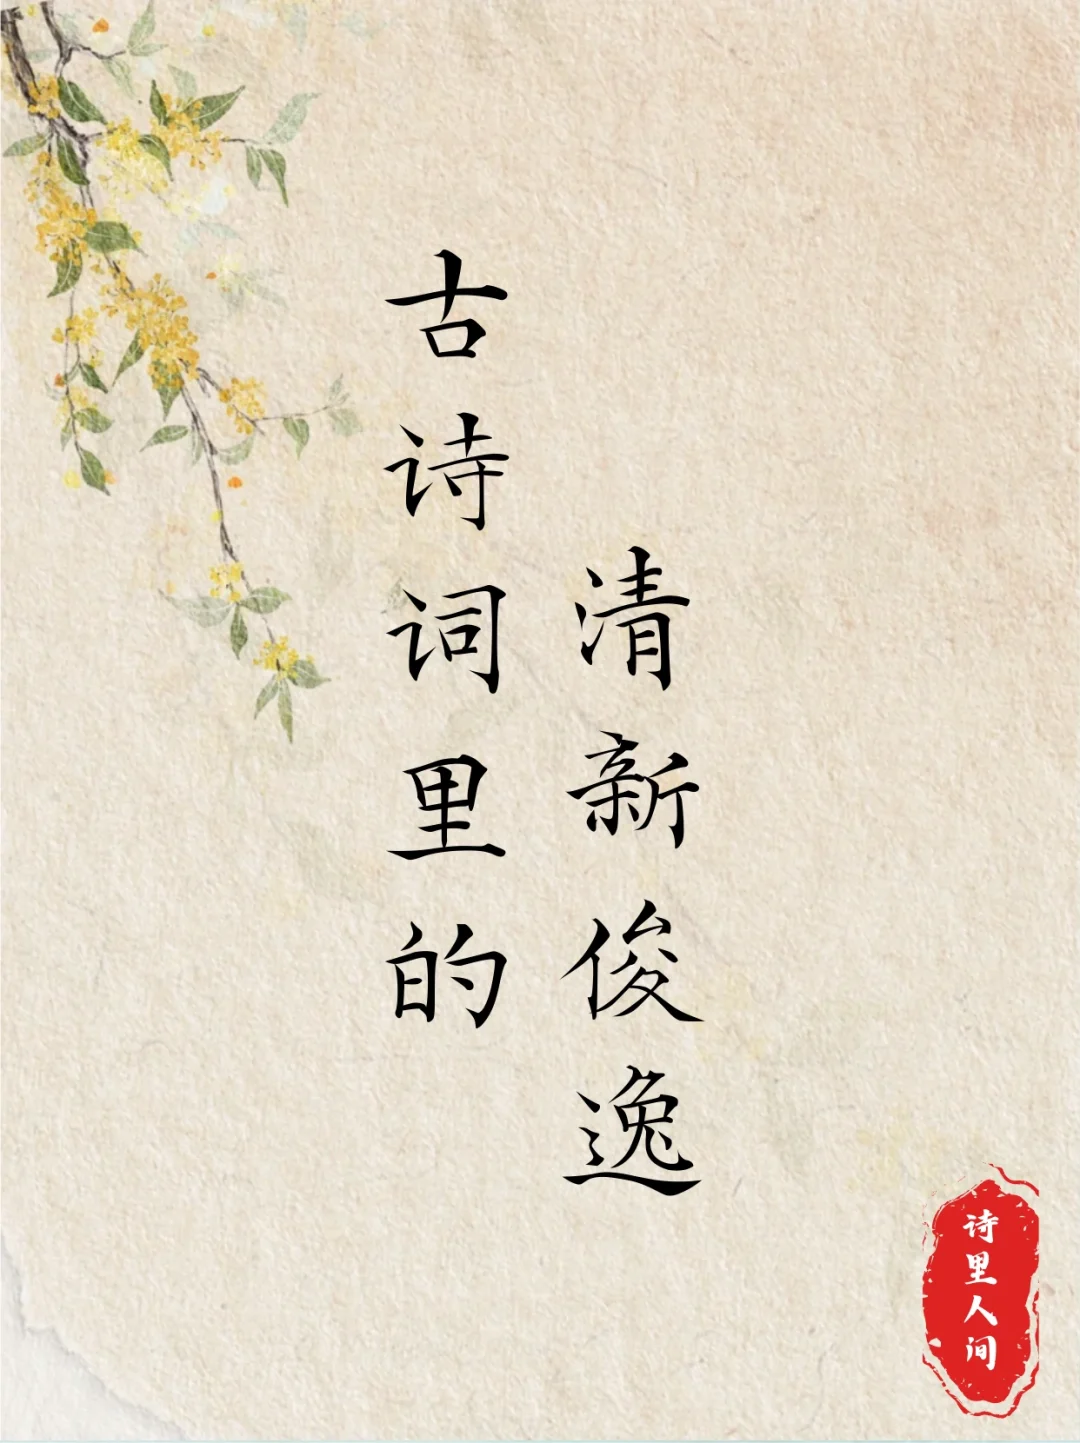 古诗词里的
清新俊逸
诗里人间